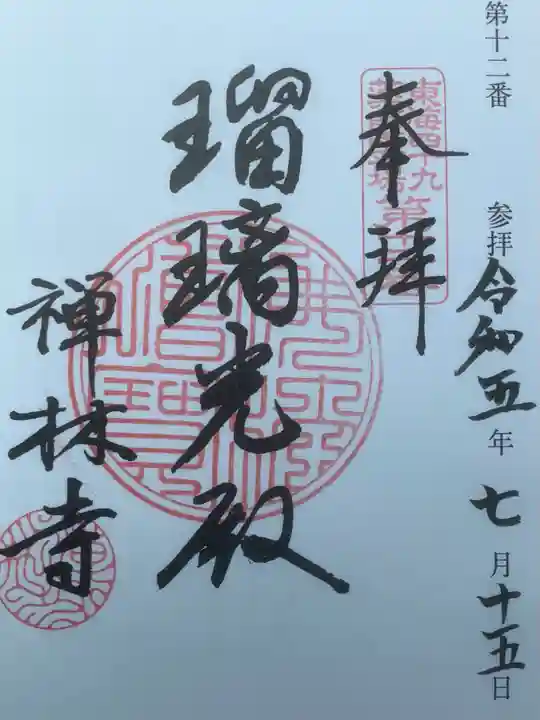 第十二番 参拝 令和五年 七月十五日
奉拝
東海四十九
瑠璃光殿
禅林寺